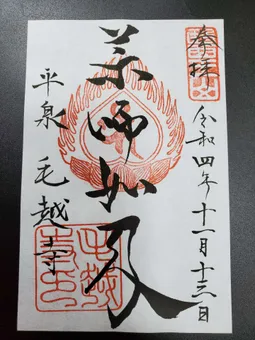 奉拝
令和四年十一月十三日
薬師如来
平泉 毛越寺